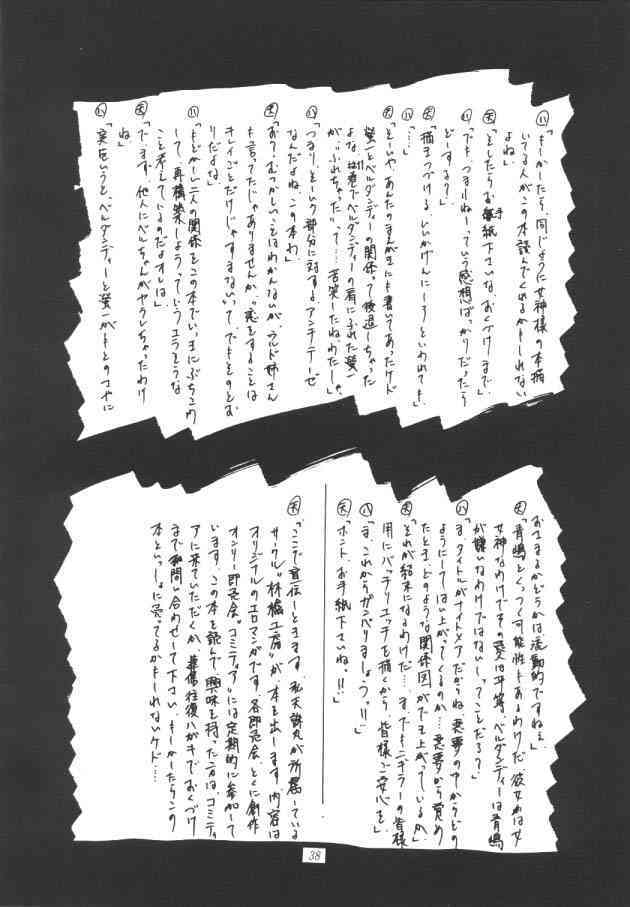 ㋩「もしかしたら、同じように女神様の本描
いてる人がこの本読んでくれるかもしれない
よね」
天「としたらお手紙下さいな、おくづけまで」
㋩「でも、つまんねーっていう感想ばっかりだったら
どーする？」
天「描きつづける。いいかげんにしろといわれても」
㋩「…」
天「とーいや、あんたのまんが
螢一とベルダンディーの関係って後退しちゃった
よな。
が、「ふれちゃった」って…苦笑したねわたしゃ」
㋩「つまり、そーいう部分に対するアンチテーゼ
なんだよね、この本わ」
天「おう、むつかしいことはわかんないが、ウルド姉さん
も言ってたじゃありませんか、"恋をすることは
キレイごとだけじゃすまない"って、でもそのとお
りだよな」
㋩「もどかしい二人の関係をこの本でいっきにぶちこわ
して、再構築しようっていうエラそうな
こと考えているのだよオレは」
天「でもまず、他人にベルちゃんがヤラレちゃったわけ
ね」
㋩「実をいうと、ベルダンディーと螢一がもとのさやに
おさまるかどうかは流動的ですねぇ」
天「青嶋とくっつく可能性もあるわけだ 彼女わは女
女神なわけでその愛は平等、ベルダンディーは青嶋
が嫌いなわけではないーってことだろ？」
㋩「ま、タイトルがナイトメアだからね、悪夢の中からどの
ようにしてはい上がってくるのか…悪夢から覚め
たとき、どのような関係図ができ上がっているか」
天「それが結末になるわけだ…、までも、
用にバッチリエッチを描くから、皆様ご安心を」
㋩「ま、これからがんばりましょつ！！」
天「ホント、お手紙下さいね。！！」
天「ここで宣伝しときます、私天誅丸が所属している
サークル"林檎工房"が本を出します。内容は
オリジナルのエロマンガです。各即売会、とくに創作
オンリー即売会"コミティア"には定期的に参加して
います。この本を読んで興味を持った方は、コミティ
アに来ていただくか、葉書往復ハガキでおくづけ
まで問い合わせして下さい。もしかしたらこの
本といっしょに売ってるかもしれないケド…
38